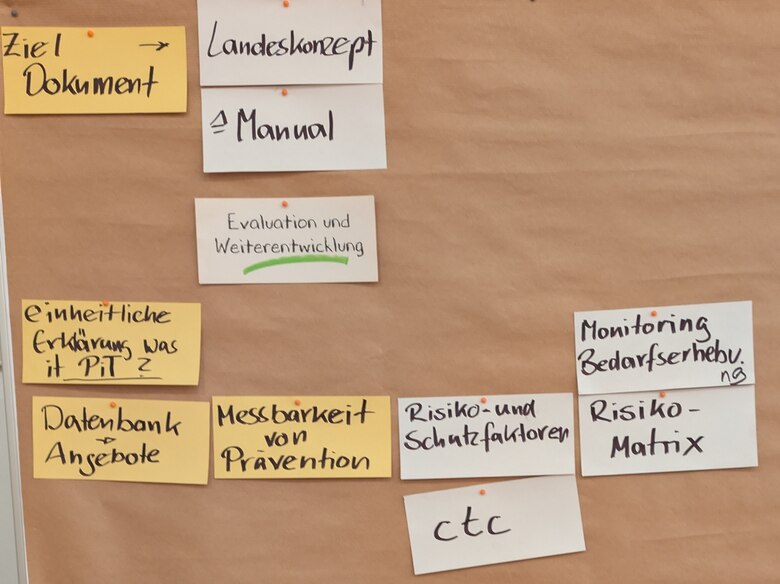 Ziel →
Dokument
Landeskonzept
≙ Manual
Evaluation und
Weiterentwicklung
einheitliche
Erklärung was
it PiT?
Datenbank
→
Angebote
Messbarkeit
von
Prävention
Risiko- und
Schutzfaktoren
ctc
Monitoring
Bedarfserhebu.
ng
Risiko-
Matrix